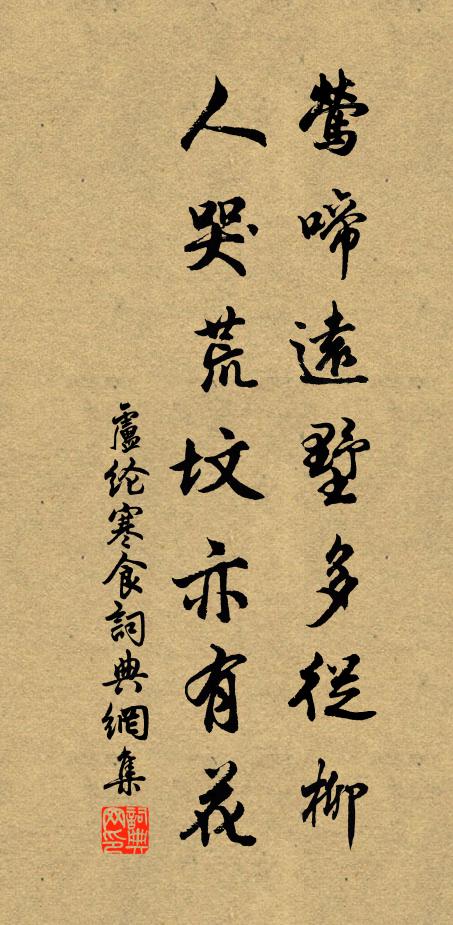 鶯啼遠墅多從柳
人哭荒墳亦有花
盧纶寒食詞典網集
詞典網印